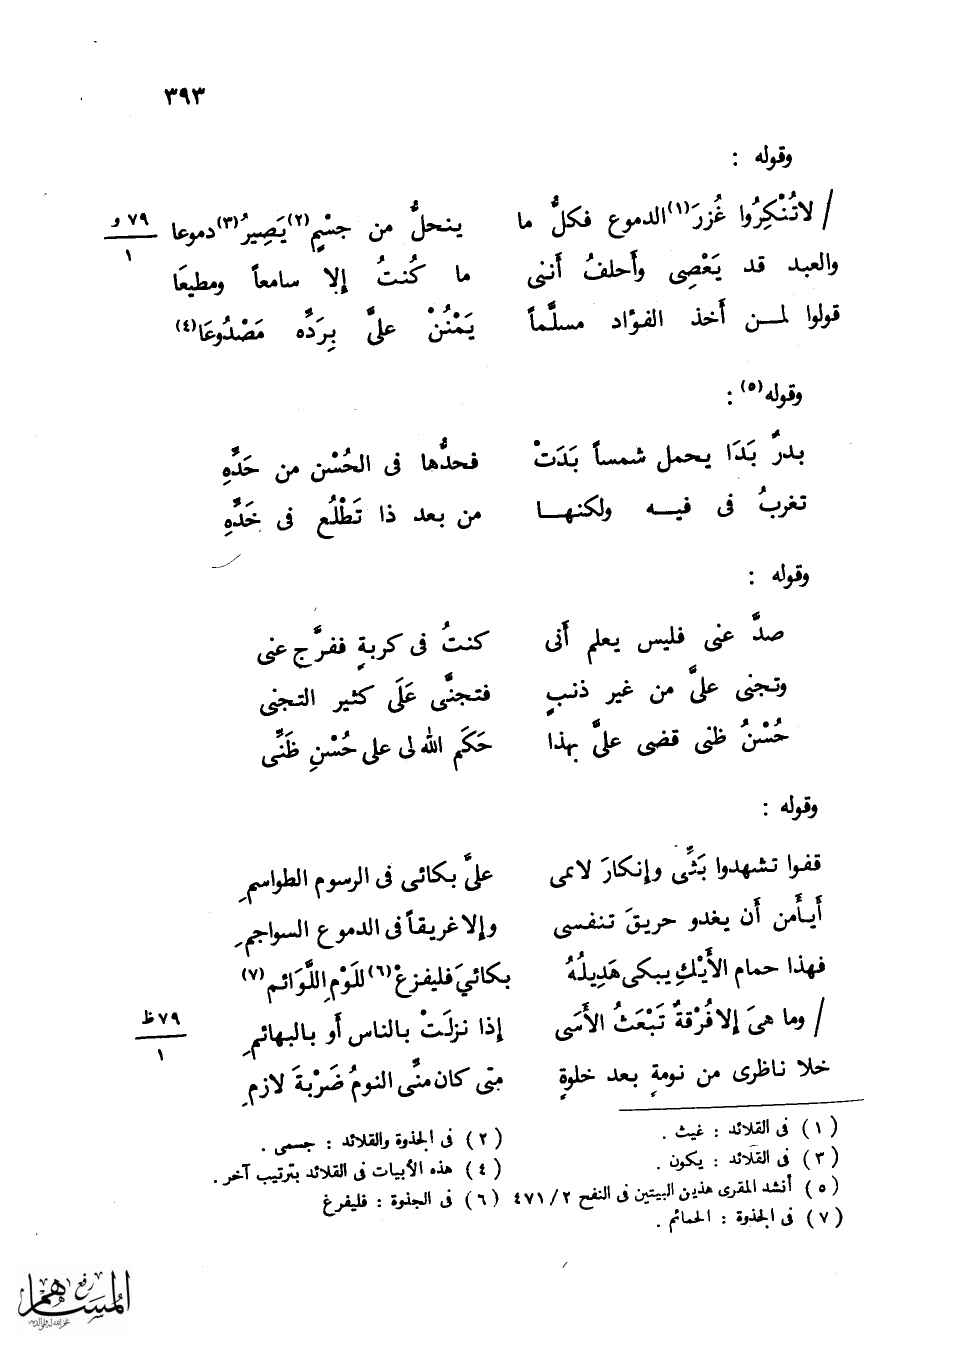 ٣٩٣
وقوله :
/ لاتُنْكِرُوا غُزرَ(١)الدموع فكلُّ ما ينحلُّ من جسْمٍ(٢)يَصِيرُ(٣)دموعا
٧٩ و
١
والعبد قد يَعْصِى وأحلفُ أننى ما كُنتُ إلا سامعاً ومطيعَا
قولوا لمن أخذ الفؤاد مسلَّماً يَمْنُنْ علىَّ بِردِّه مَصْدُوعَا(٤)
وقوله(٥) :
بدرٌ بَدَا يحمل شمساً بَدَتْ فحدُّها فى الحُسْن من حَدِّهِ
تغربُ فى فيه ولكنها من بعد ذا تَطْلُع فى خَدِّهِ
وقوله :
صدَّ عنى فليس يعلم أنى كنتُ فى كربةٍ ففرَّج عنى
وتجنى علىَّ من غير ذنبٍ فتجنَّى عَلَى كثير التجنى
حُسْنُ ظنى قضى علىَّ بهذا حَكَم الله لى على حُسْنِ ظَنِّى
وقوله :
قفوا تشهدوا بَثِّى وإنكارَ لائمى علىَّ بكائى فى الرسوم الطواسمِ
أيأمن أن يغدو حريقَ تنفسى وإلا غريقاً فى الدموع السواجمِ
فهذا حمام الأيْكِ يبكى هَدِيلُهُ بكائىَ فليفزعْ(٦) للَوْمِ اللَّوَائم(٧)
/ وما هىَ إلا فُرْقةٌ تَبْعَثُ الأَسَى إذا نزلَتْ بالناس أو بالبهائمِ
٧٩ ظ
١
خلا ناظرى من نومةٍ بعد خلوةٍ متى كان منِّى النومُ ضَرْبةَ لازمِ
(١) فى القلائد : غيث . (٢) فى الجذوة والقلائد : جسمى .
(٣) فى القلائد : يكون . (٤) هذه الأبيات فى القلائد بترتيب آخر .
(٥) أنشد المقرى هذين البيتين فى النفح ٢/ ٤٧١ (٦) فى الجذوة : فليفرغ
(٧) فى الجذوة : الحمائم .
رفع
المساهم